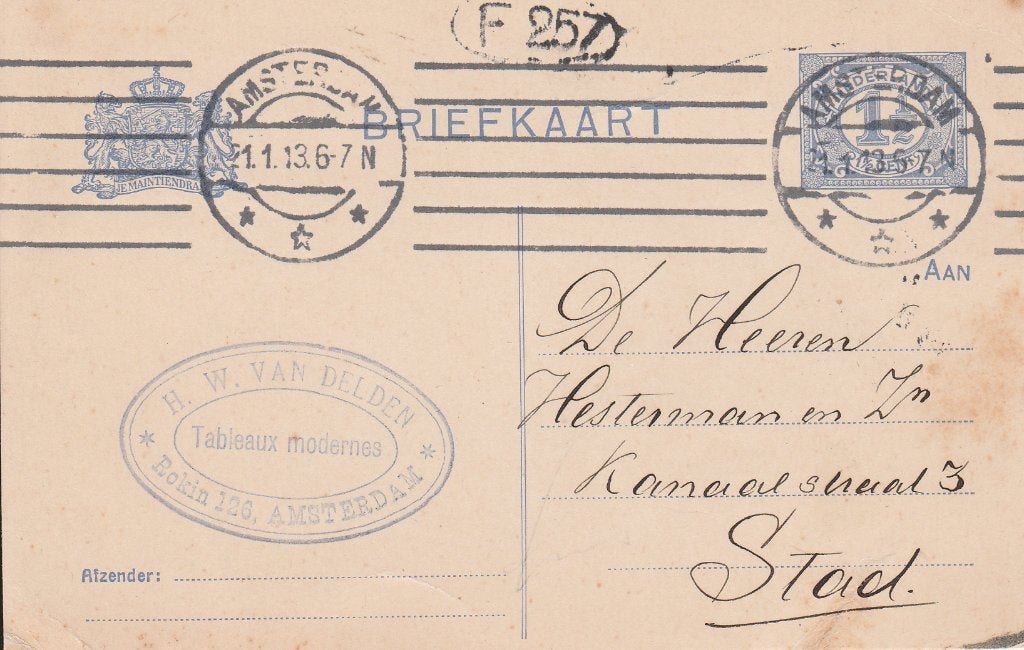 F 257
AMSTERDAM
21.1.13.6-7 N
JE MAINTIENDRAI
BRIEFKAART
NEDERLAND
1½
CENT
AMSTERDAM
21.1.13.6-7 N
AAN
De Heeren
Hesterman en Zn
Kanaalstraat 3
Stad.
H. W. VAN DELDEN
Tableaux modernes
Rokin 126, AMSTERDAM
Afzender: